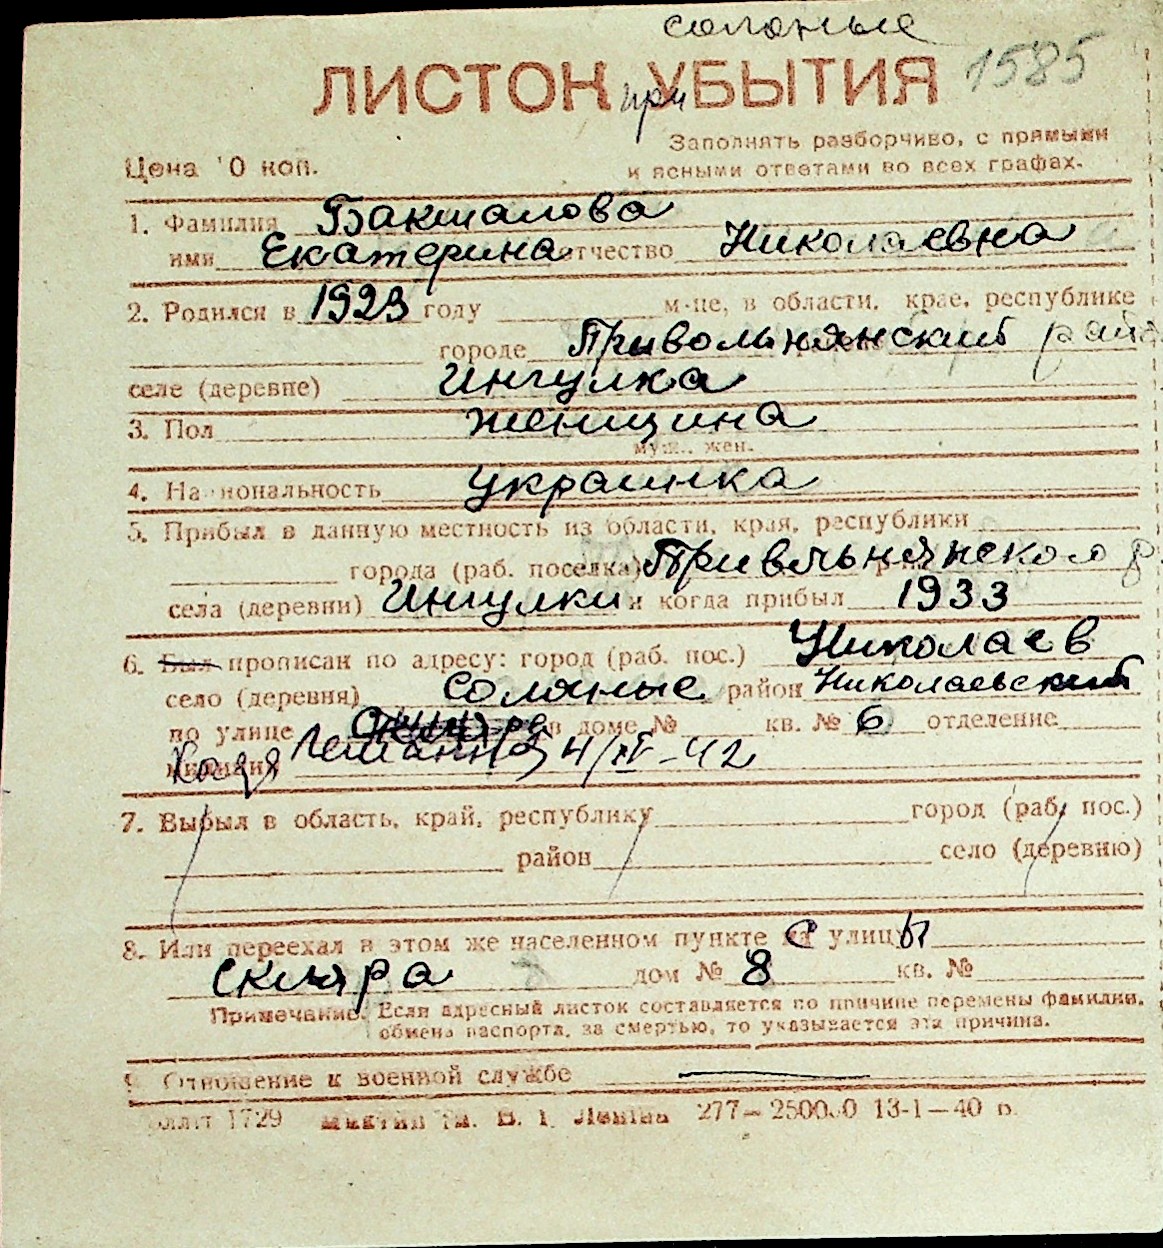 соляные
ЛИСТОК при УБЫТИЯ 1585
Заполнять разборчиво, с прямыми
Цена 10 коп. и ясными ответами во всех графах.
1. Фамилия Бакшалова
имя Екатерина отчество Николаевна
2. Родился в 1923 году м-це, в области, крае, республике
городе Привольнянский район
селе (деревне) Ингулка
3. Пол женщина
муж., жен.
4. Национальность украинка
5. Прибыл в данную местность из области, края, республики
города (раб. поселка) Привльнянского р
села (деревни) Ингулки и когда прибыл 1933
6. Был прописан по адресу: город (раб. пос.) Николаев
село (деревня) Соляные район Николаевский
по улице в доме № кв. № 6 отделение
милиции 4/IV-42
7. Выбыл в область, край, республику город (раб. пос.)
район село (деревню)
8. Или переехал в этом же населенном пункте с улицы
Скляра дом № 8 кв. №
Примечание. Если адресный листок составляется по причине перемены фамилии,
обмена паспорта, за смертью, то указывается эта причина.
9. Отношение к военной службе
1729 им. В. І. Леніна 277—250000 13-1—40 р.